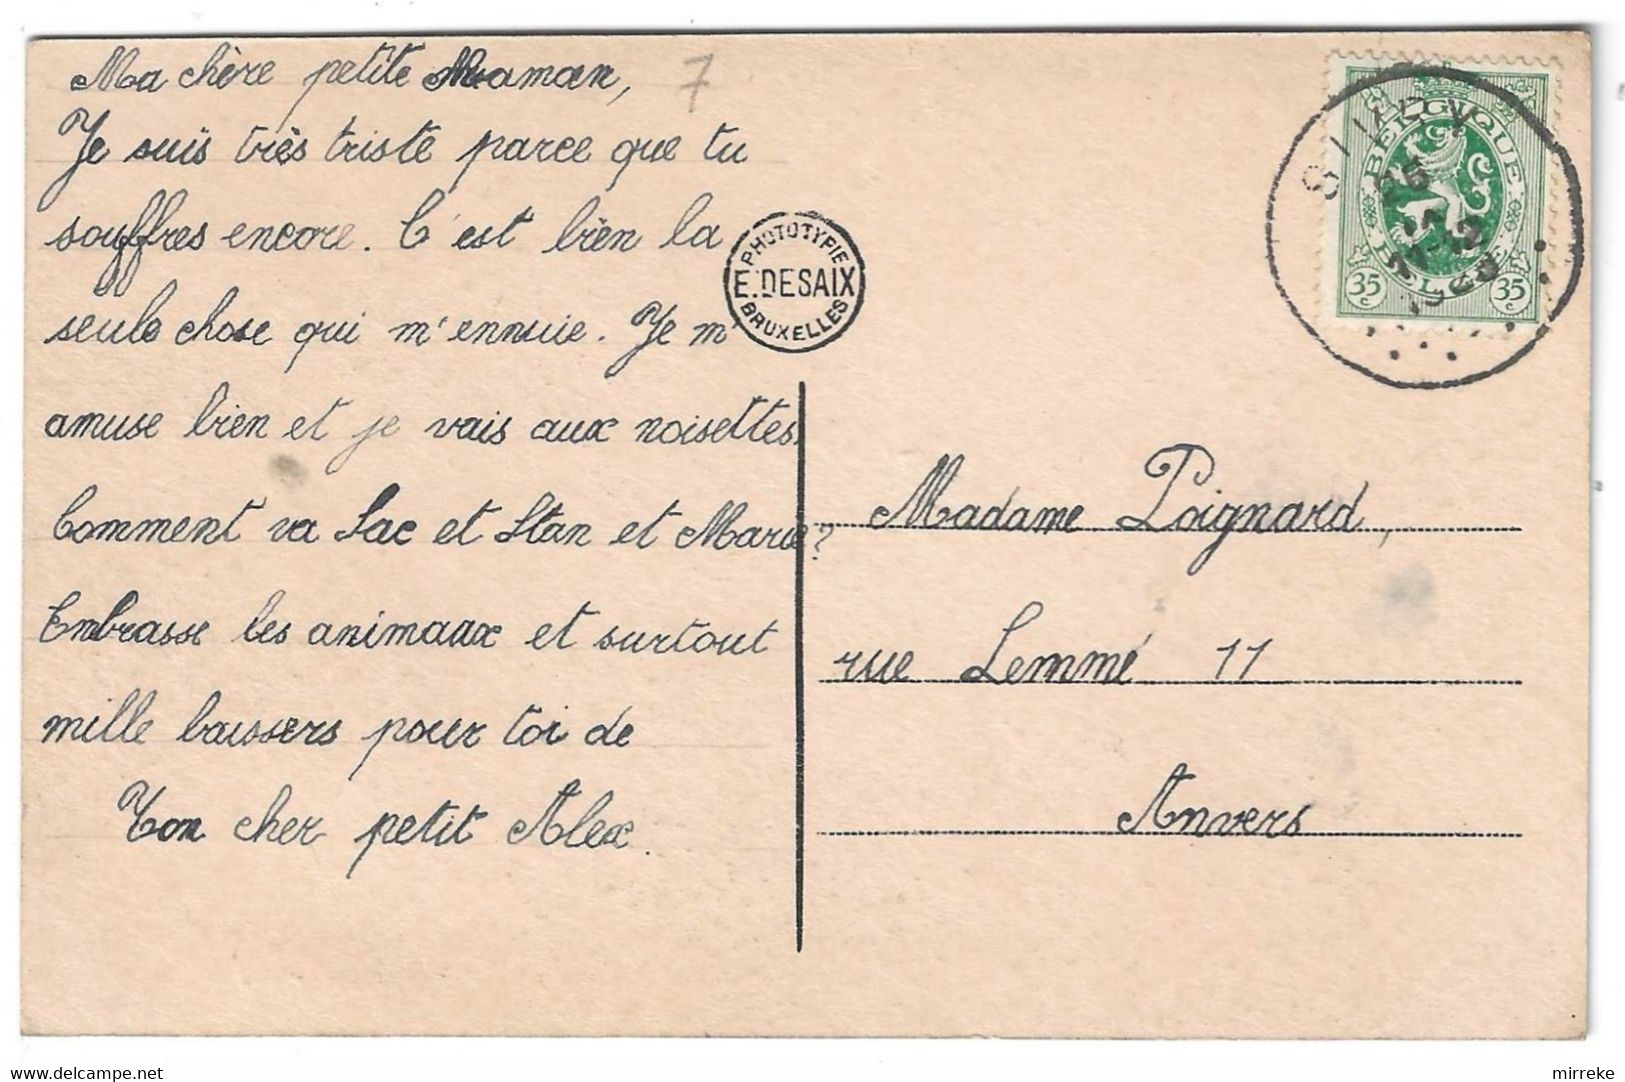 Ma chère petite Maman,
7
Je suis très triste parce que tu
souffres encore. C'est bien la
seule chose qui m'ennuie. Je m'
amuse bien et je vais aux noisettes.
Comment va Sac et Stan et Marie?
Embrasse les animaux et surtout
mille baissers pour toi de
Ton cher petit Alex.
PHOTOTYPIE
E.DESAIX
BRUXELLES
BELGIQUE
BELGIË
35 c
35 c
Madame Poignard,
rue Lemmé 11
Anvers
mirreke